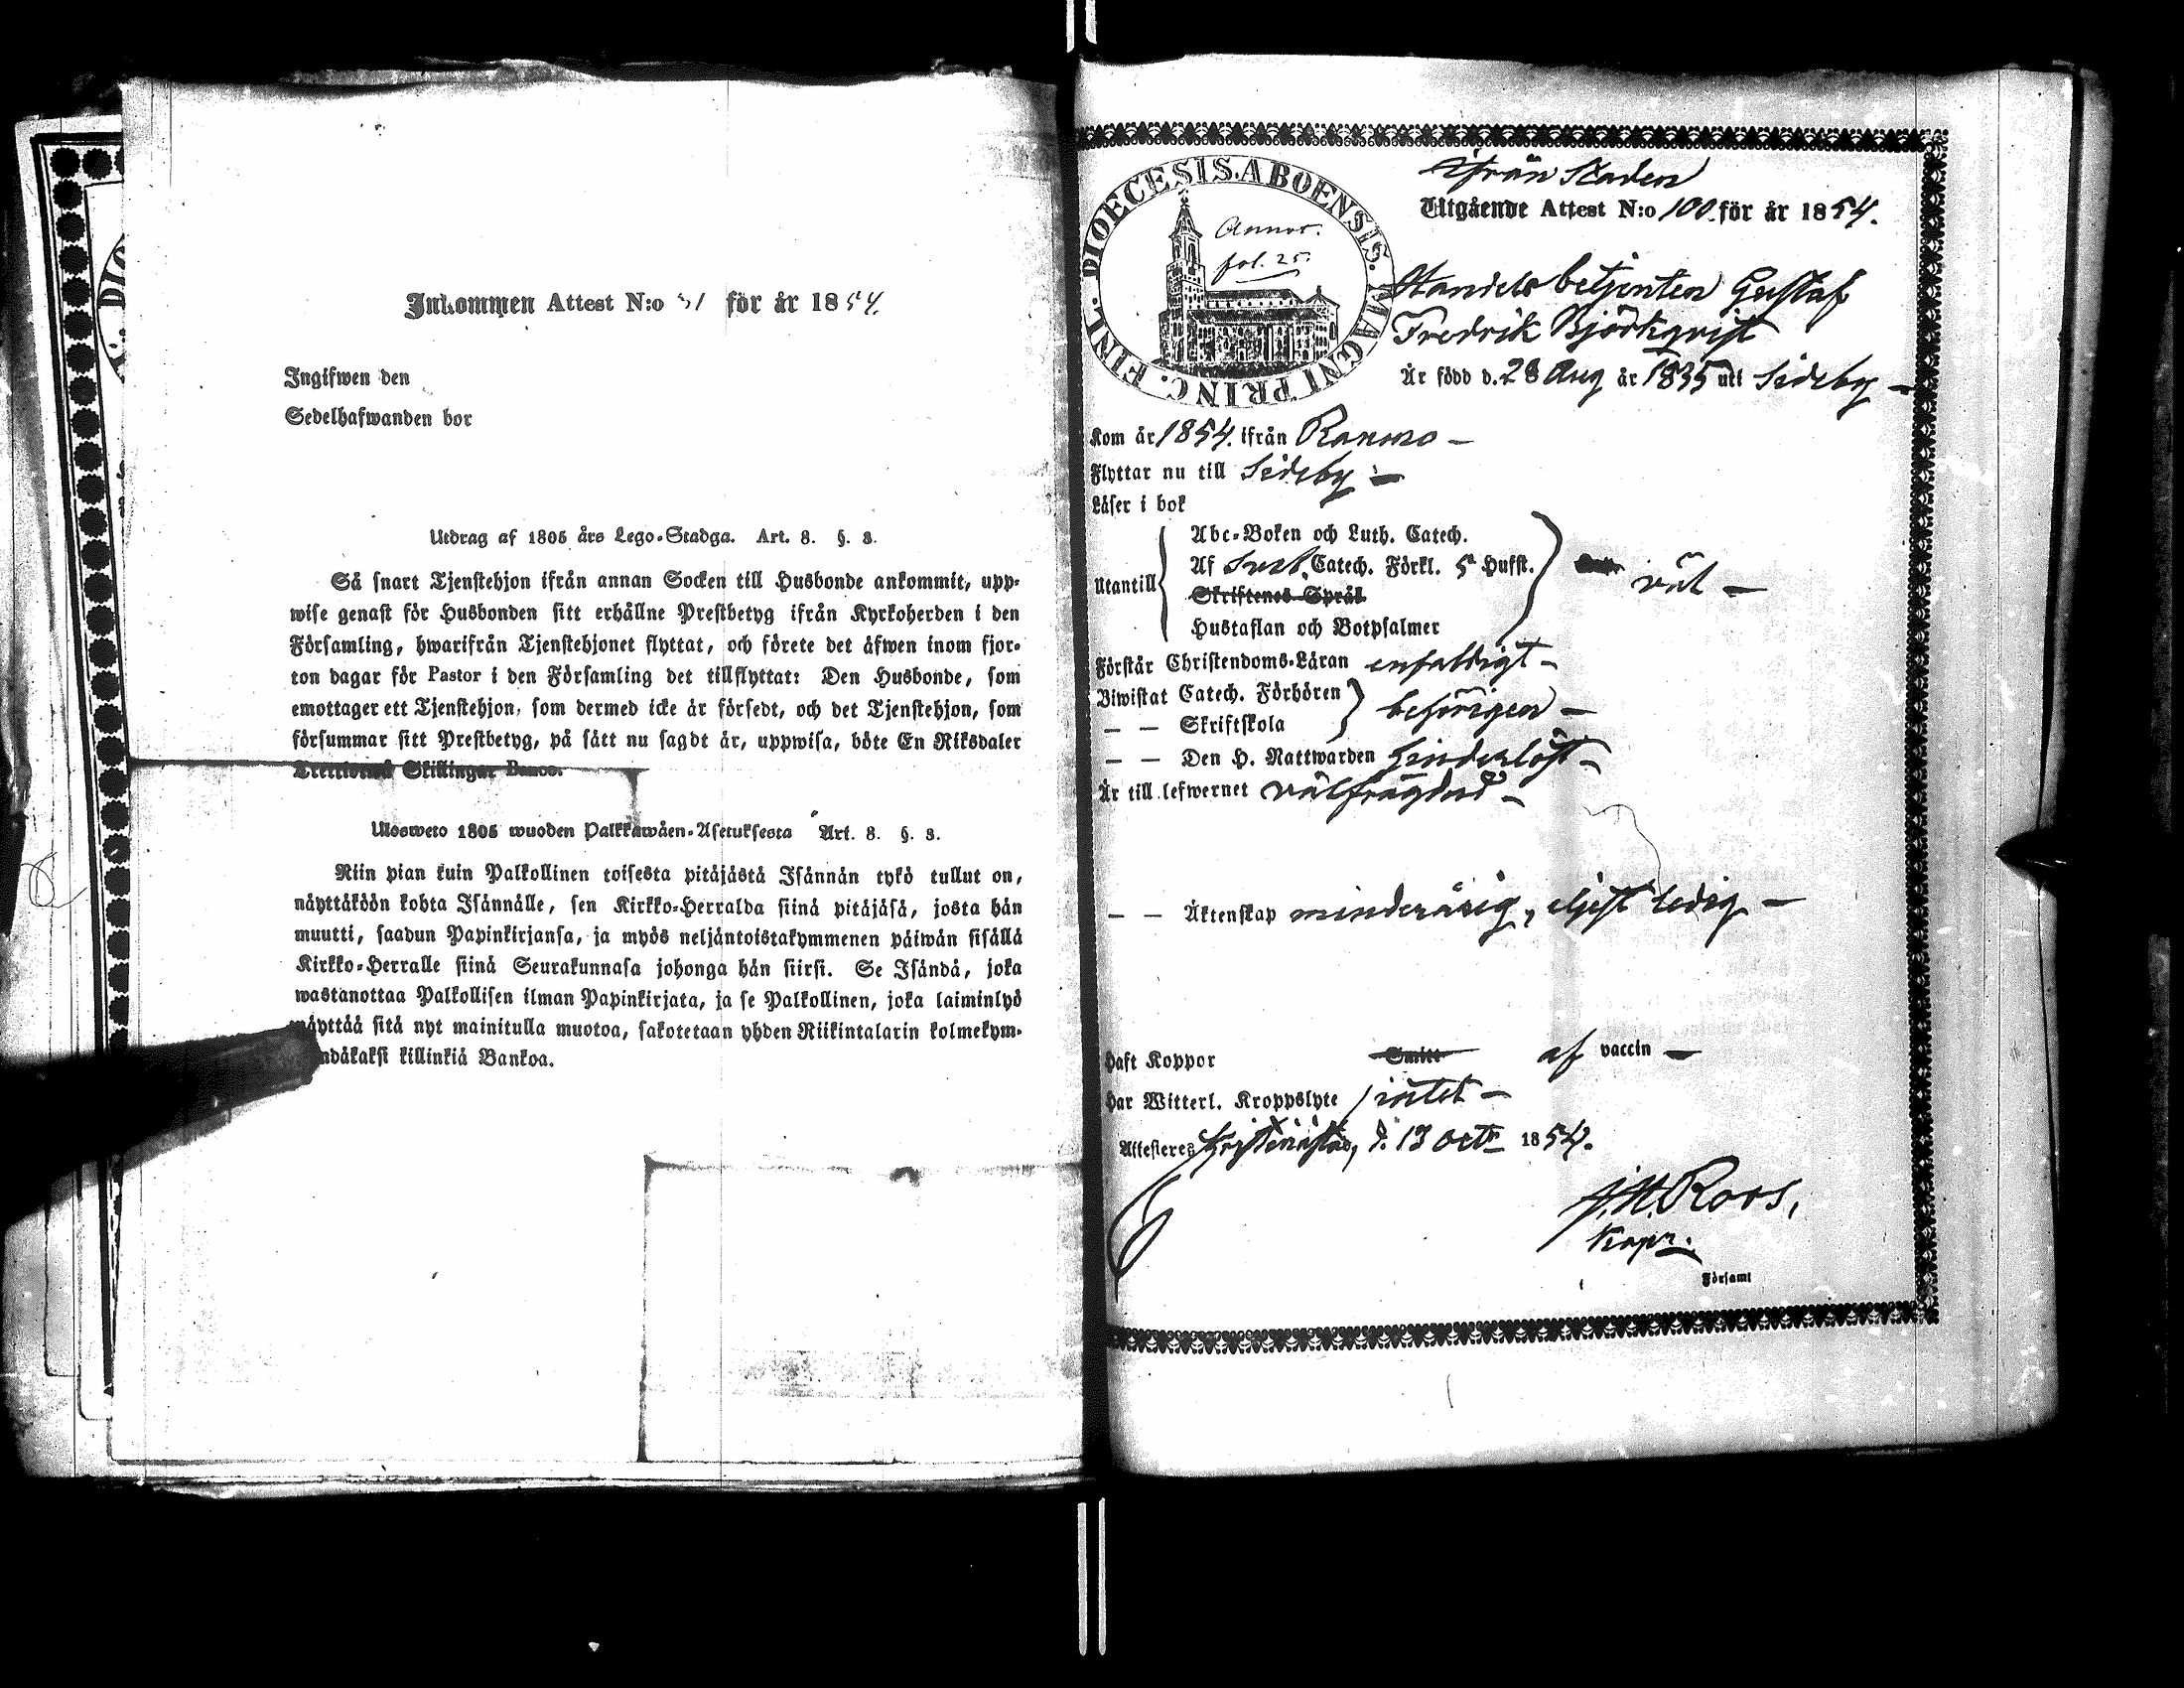 Inkommen Attest N:o 51 för år 1854.
Ingifwen den
Sedelhafwanden bor
Utdrag af 1805 års Lego-Stadga. Art. 8. §. 3.
Så snart Tjenstehjon ifrån annan Socken till Husbonde ankommit, upp-
wise genast för Husbonden sitt erhållne Prestbetyg ifrån Kyrkoherden i den
Församling, hwarifrån Tjenstehjonet flyttat, och förete det äfwen inom fjor-
ton dagar för Pastor i den Församling det tillflyttat: Den Husbonde, som
emottager ett Tjenstehjon, som dermed icke är försedt, och det Tjenstehjon, som
försummar sitt Prestbetyg, på sätt nu sagdt är, uppwisa, böte En Riksdaler
Trettiotwå Skillingar Banco.
Ulosweto 1805 wuoden Palkkawäen-Asetuksesta Art. 8. §. 3.
Niin pian kuin Palkollinen toisesta pitäjästä Isännän tykö tullut on,
näyttäköön kohta Isännälle, sen Kirkko-Herralda siinä pitäjäsä, josta hän
muutti, saadun Papinkirjansa, ja myös neljäntoistakymmenen päiwän sisällä
Kirkko-Herralle siinä Seurakunnasa johonga hän siirsi. Se Isändä, joka
wastanottaa Palkollisen ilman Papinkirjata, ja se Palkollinen, joka laiminlyö
näyttää sitä nyt mainitulla muotoa, sakotetaan yhden Riikintalarin kolmekym-
mendäkaksi killinkiä Bankoa.
DIOECESIS. ABOENSIS. MAGNI PRINC. FINL.
Annot.
fol. 25.
ifrån Staden
Utgående Attest N:o 100 för år 1854.
Handels betjenten Gustaf
Fredrik Björkqvist
Är född d. 28 Aug år 1835 uti Sideby –
Kom år 1854. ifrån Raumo –
Flyttar nu till Sideby –
Läser i bok
Utantill
Abc-Boken och Luth. Catech.
Af Sveb. Catech. Förkl. 5 Hufst.
Skriftenes Språk
Hustaflan och Botpsalmer
väl –
Förstår Christendoms-Läran enfaldigt –
Biwistat Catech. Förhören
— — Skriftskola
behörigen –
— — Den H. Nattwarden hinderlöst –
Är till lefwernet välfrägdad –
— — Äktenskap minderårig, eljest ledig –
Haft Koppor Smitt af vaccin –
Har Witterl. Kroppslyte intet –
Attesteras Kristinestad, d. 13 Octr 1854.
J. H. Roos,
Församl